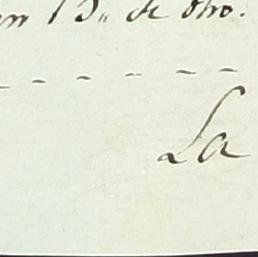 en 13,, de Otro.
- - - - - - -
La